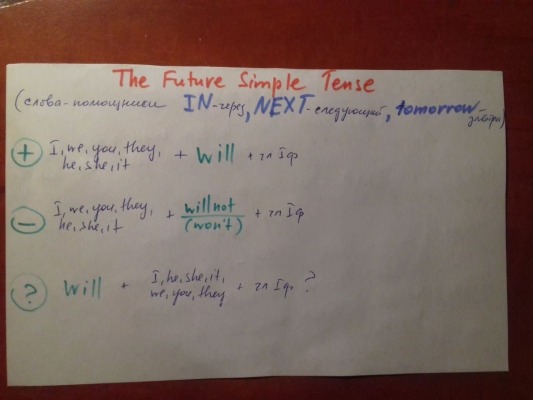 The Future Simple Tense
(слова-помощники IN-через, NEXT-следующий, tomorrow-завтра)
+ I, we, you, they,
he, she, it + will + гл I ф
- I, we, you, they,
he, she, it + will not (won't) + гл I ф
? will + I, he, she, it,
we, you, they + гл I ф ?